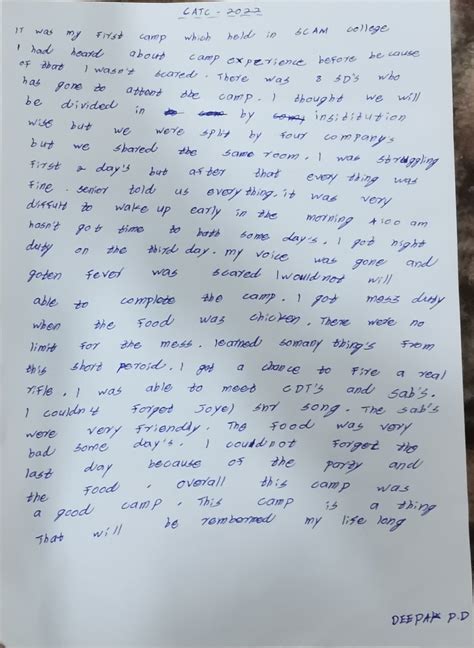 CATC - 2022
IT was my first camp which held in SCAM college
I had heard about camp experience before because
of that I wasn't scared. There was 8 SD's who
has gone to attont the camp. I thought we will
be divided in by insititution
wise but we were split by four company's
but we shared the same room. I was struggling
first 2 day's but after that every thing was
fine. senior told us every thing, it was very
diffult to wake up early in the morning 4:00 am
hasn't got time to bath some day's. I got night
duty on the third day. my voice was gone and
goten fever was scared I would not will
able to complete the camp. I got mess duty
when the food was chicken. There were no
limit for the mess. learned somany thing's from
this short peroid. I got a chance to fire a real
rifle. I was able to meet CDT's and sab's.
I couldn't forget Joyel snr song. The sab's
were very friendly. The food was very
bad some day's. I could not forget the
last day because of the party and
the food. overall this camp was
a good camp. This camp is a thing
That will be rembormed my life long
DEEPAK P.D